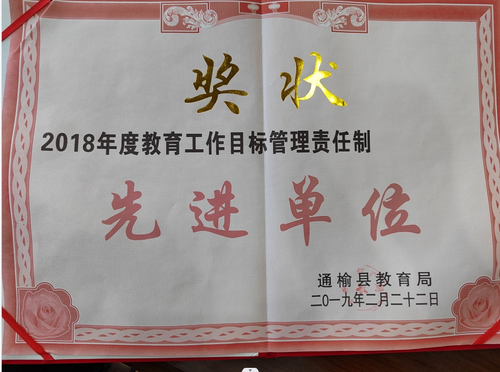 奖状
2018年度教育工作目标管理责任制
先进单位
通榆县教育局
二〇一九年二月二十二日